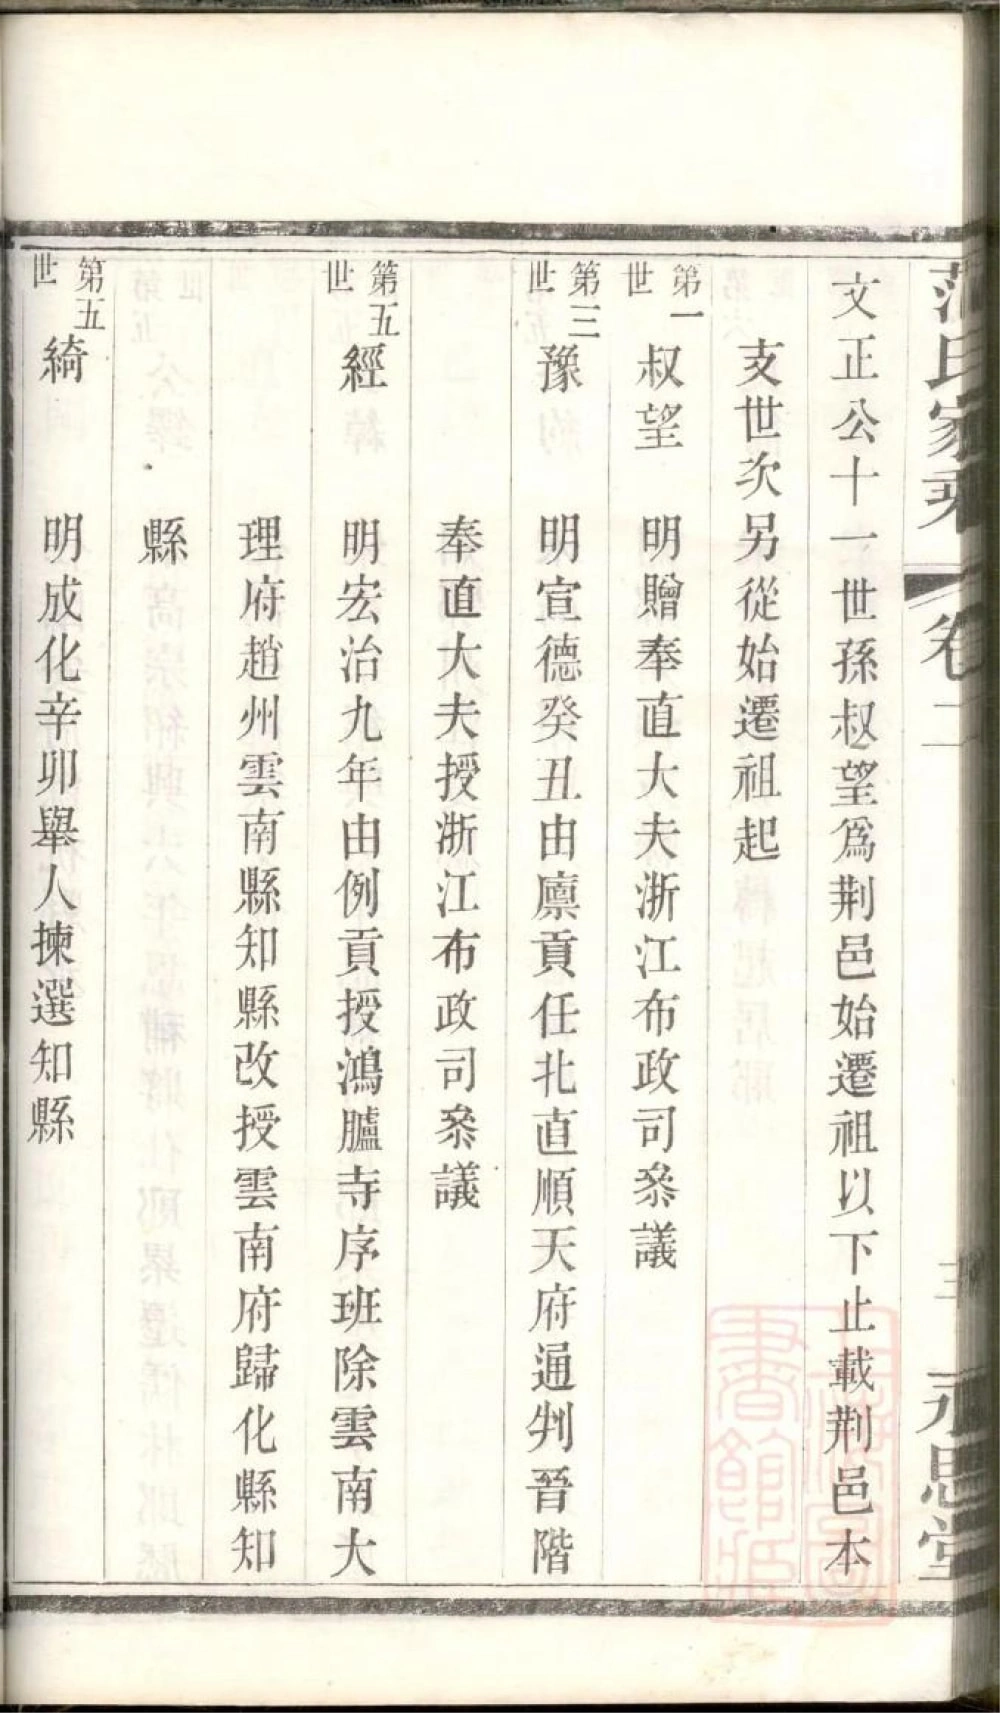 范氏家乘 卷二 三 永思堂
文正公十一世孫叔望爲荆邑始遷祖以下止載荆邑本
支世次另從始遷祖起
第一世 叔望 明贈奉直大夫浙江布政司叅議
第三世 豫 明宣德癸丑由廪貢任北直順天府通判晉階
奉直大夫授浙江布政司叅議
第五世 經 明宏治九年由例貢授鴻臚寺序班除雲南大
理府趙州雲南縣知縣改授雲南府歸化縣知
縣
第五世 綺 明成化辛卯舉人揀選知縣